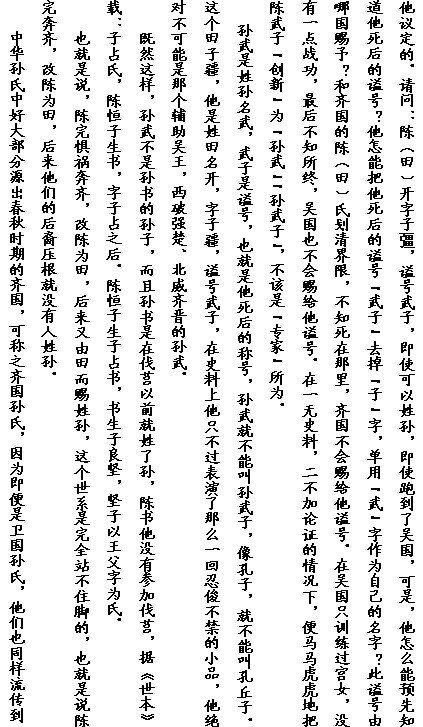 他议定的。请问：陈（田）开字子彊，谥号武子，即使可以姓孙，即使跑到了吴国，可是，他怎么能预先知
道他死后的谥号？他怎能把他死后的谥号“武子”去掉“子”字，单用“武”字作为自己的名字？此谥号由
哪国赐予？和齐国的陈（田）氏划清界限，不知死在那里，齐国不会赐给他谥号。在吴国只训练过宫女，没
有一点战功，最后不知所终，吴国也不会赐给他谥号。在一无史料，二不加论证的情况下，便马马虎虎地把
陈武子“创新”为“孙武”“孙武子”，不该是“专家”所为。
孙武是姓孙名武，武子是谥号，也就是他死后的称号，孙武就不能叫孙武子，像孔子，就不能叫孔丘子。
这个田子疆，他是姓田名开，字子疆，谥号武子，在史料上他只不过表演了那么一回忍俊不禁的小品，他绝
对不可能是那个辅助吴王，西破强楚、北威齐晋的孙武。
既然这样，孙武不是孙书的孙子，而且孙书是在伐莒以前就姓了孙，陈书他没有参加伐莒，据《世本》
载：子占氏，陈恒子生书，字子占之后。陈恒子生子占书，书生子良坚，坚子以王父字为氏。
也就是说，陈完惧祸奔齐，改陈为田，后来又由田而赐姓孙，这个世系是完全站不住脚的，也就是说陈
完奔齐，改陈为田，后来他们的后裔压根就没有人姓孙。
中华孙氏中好大部分源出春秋时期的齐国，可称之齐国孙氏，因为即便是卫国孙氏，他们也同样流传到